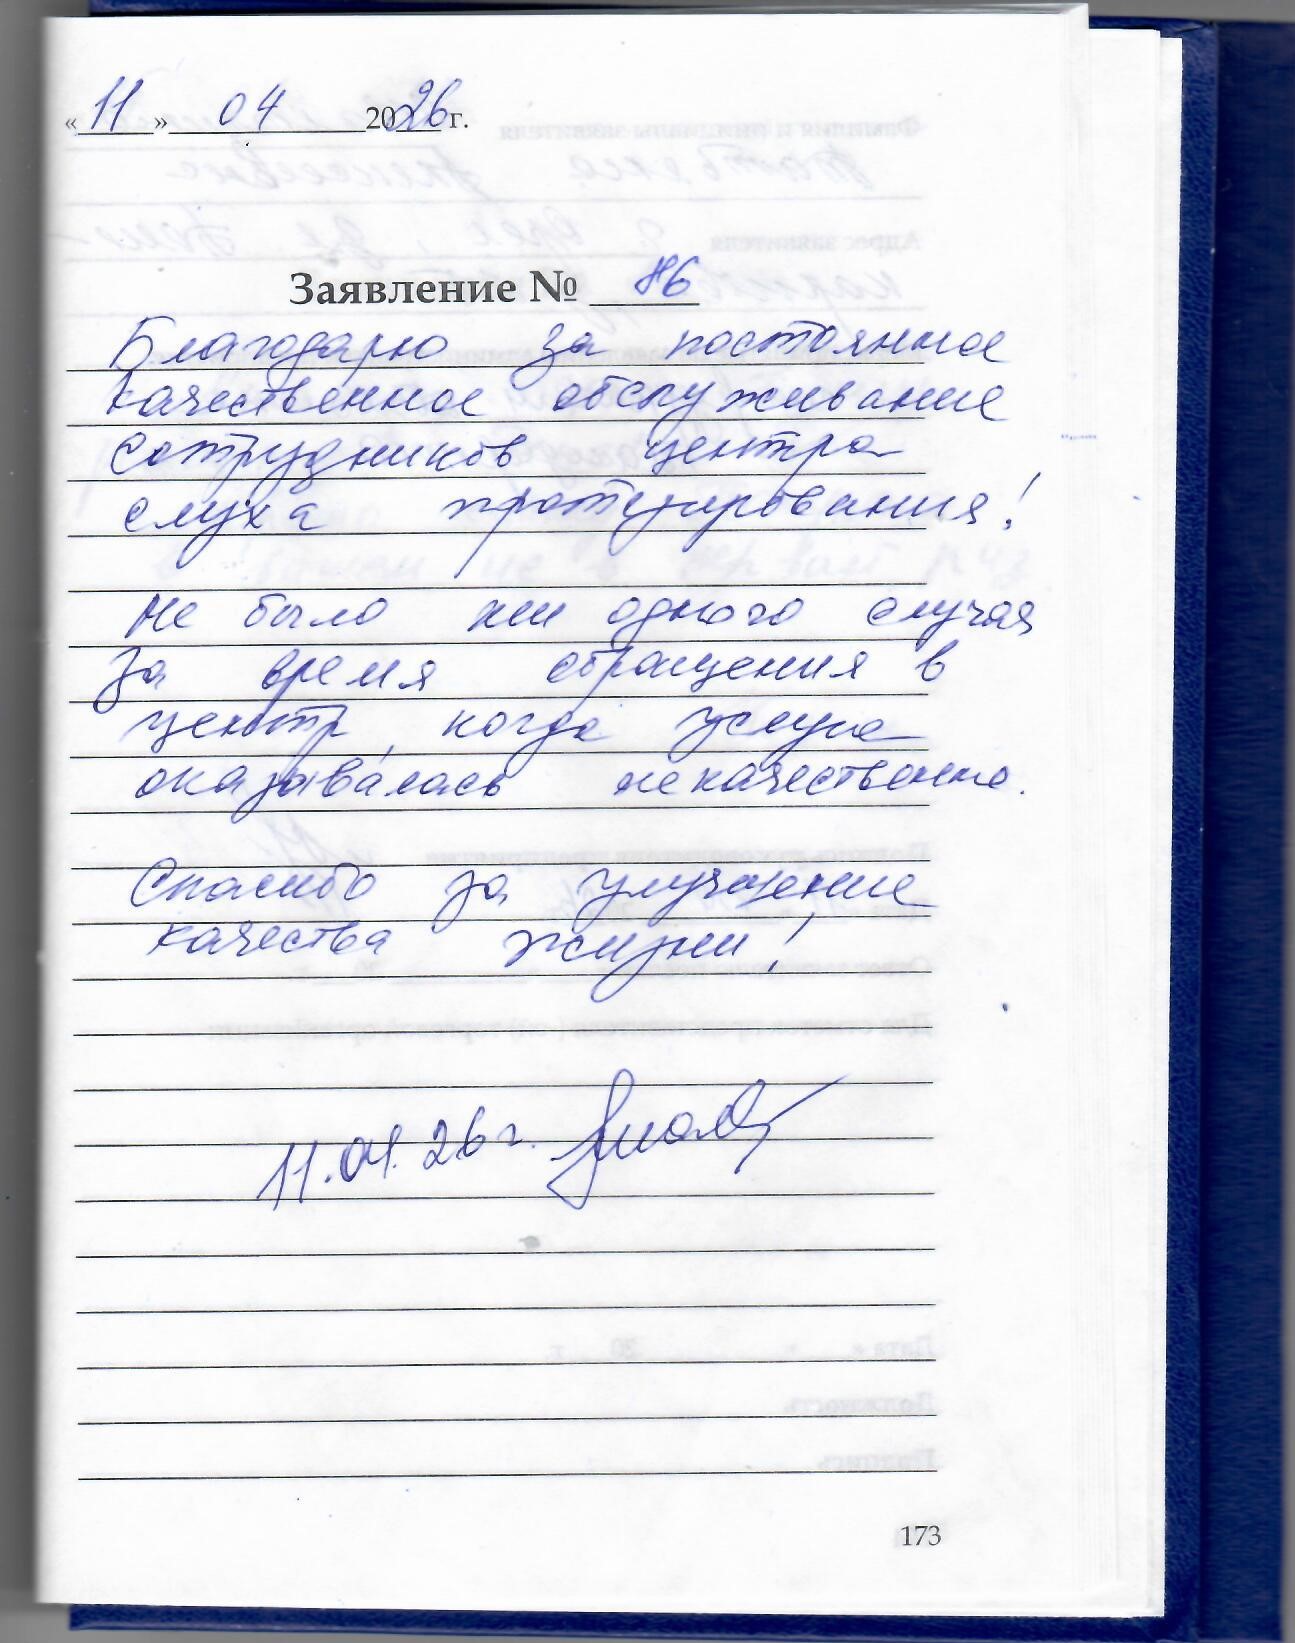 «11» 04 2026 г.
Заявление № 86
Благодарю за постоянное
качественное обслуживание
сотрудников центра
слуха протезирования!
Не было ни одного случая
за время обращения в
центр, когда услуга
оказывалась некачественно.
Спасибо за улучшение
качества жизни!
11.04.26 г.
173